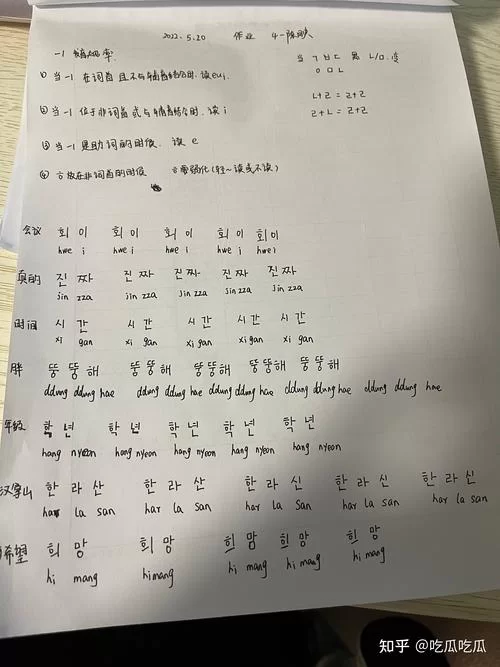 2022. 5.20 作业 4-陈
一 发音规率
当 ㄱ ㅂ ㄷ 遇 ㄴ/ㅁ. 变
ㅇ ㅁ ㄴ
① 当 ㅢ 在词首且不与辅音结合时. 读 eui.
ㄴ+ㄹ = ㄹ+ㄹ
ㄹ+ㄴ = ㄹ+ㄹ
② 当 ㅢ 位于非词首或与辅音结合时. 读 i
③ 当 ㅢ 是助词的时候. 读 e
④ ㅎ 放在非词首的时候 ㅎ需弱化(轻~读或不读)
会议 회 이 회 이 회 이 회 이 회 이
hwe i hwe i hwe i hwe i hwe i
真的 진 짜 진 짜 진 짜 진 짜 진 짜
jin zza jin zza jin zza jin zza jin zza
时间 시 간 시 간 시 간 시 간 시 간
xi gan xi gan xi gan xi gan xi gan
胖 뚱 뚱 해 뚱 뚱 해 뚱 뚱 해 뚱 뚱 해 뚱 뚱 해
ddung ddung hae ddung ddung hae ddung ddung hae ddung ddung hae ddung ddung hae
年级 학 년 학 년 학 년 학 년 학 년
hang nyeon hang nyeon hang nyeon hang nyeon hang nyeon
汉拿山 한 라 산 한 라 산 한 라 신 한 라 신 한 라 신
har la san har la san har la san har la san har la san
希望 희 망 희 망 희 맘 희 망 희 망
hi mang hi mang hi mang hi mang hi mang
知乎 @吃瓜吃瓜